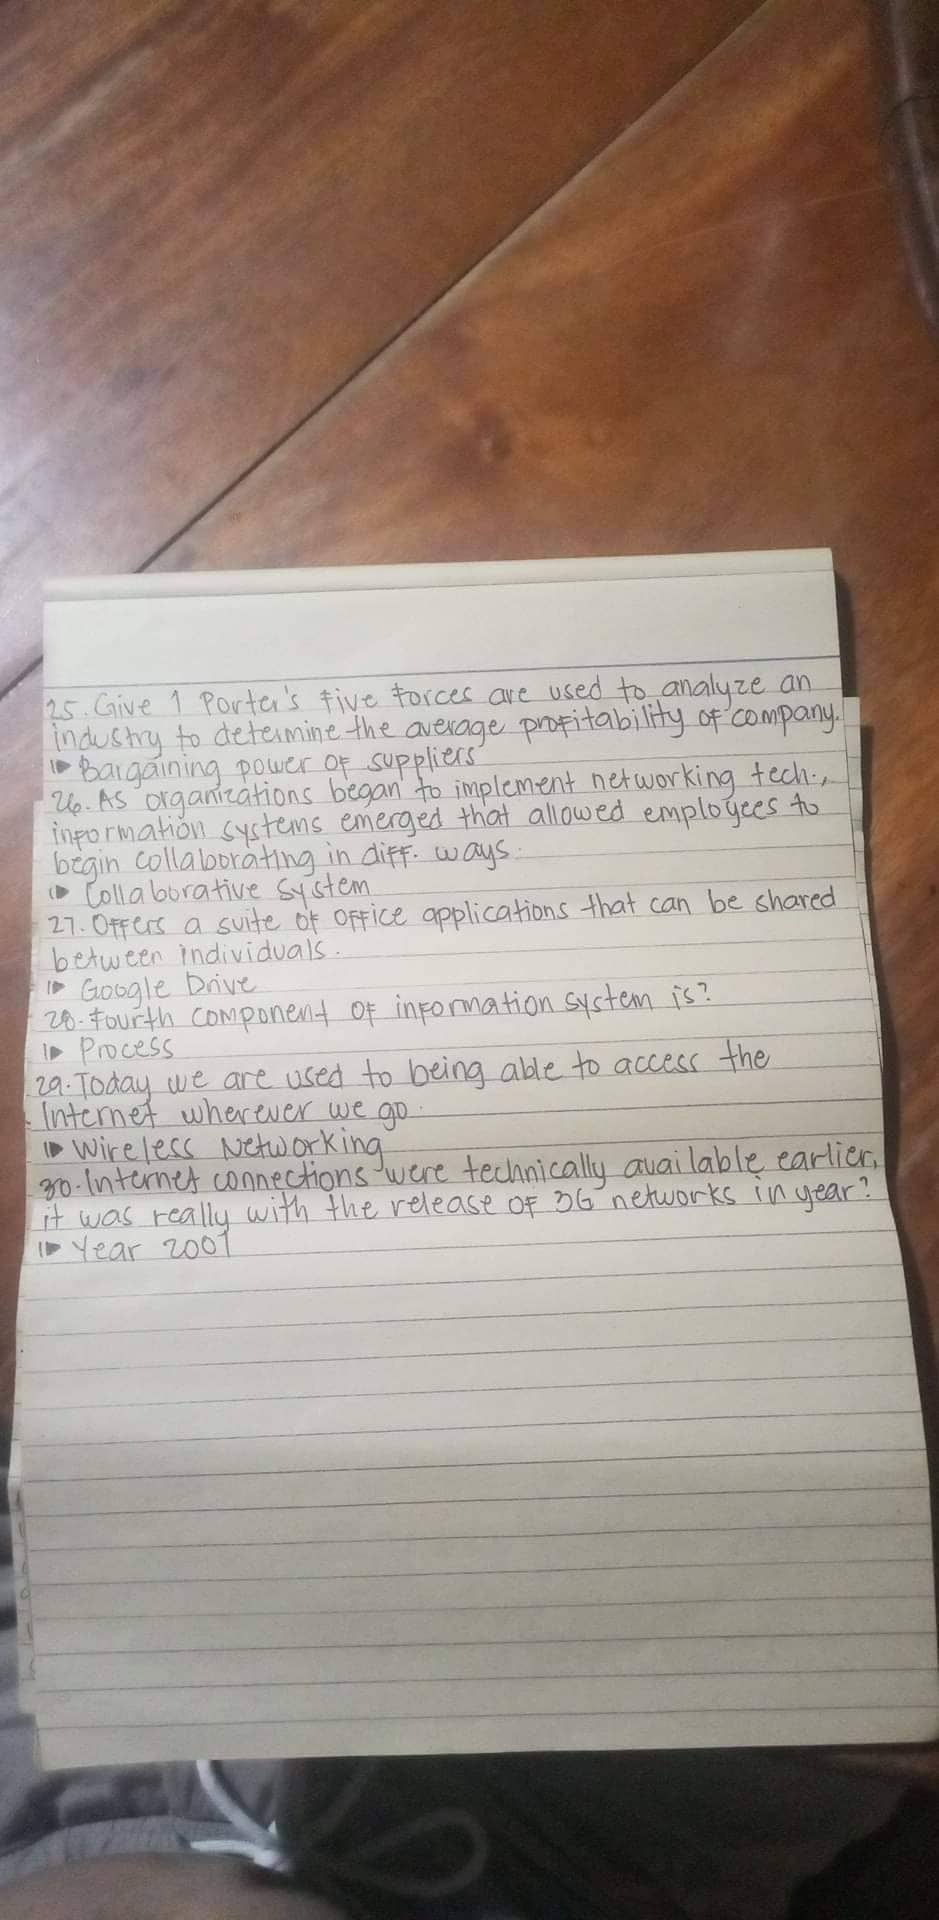 25. Give 1 Porter's five forces are used to analyze an
industry to determine the average profitability of company.
Bargaining power of suppliers
26. As organizations began to implement networking tech.,
information systems emerged that allowed employees to
begin collaborating in diff. ways.
Collaborative System
27. Offers a suite of office applications that can be shared
between individuals.
Google Drive
28. Fourth component of information system is?
Process
29. Today we are used to being able to access the
Internet wherever we go.
Wireless Networking
30. Internet connections were technically available earlier,
it was really with the release of 3G networks in year?
Year 2001